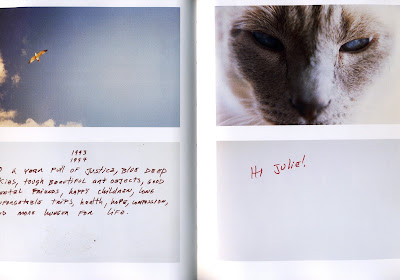 1993
1994
a year full of justice, blue deep
skies, tough beautiful art objects, good
mental friends, happy children, love
unforgetable trips, health, hope, compassion,
and more hunger for life.
Hi Julie!